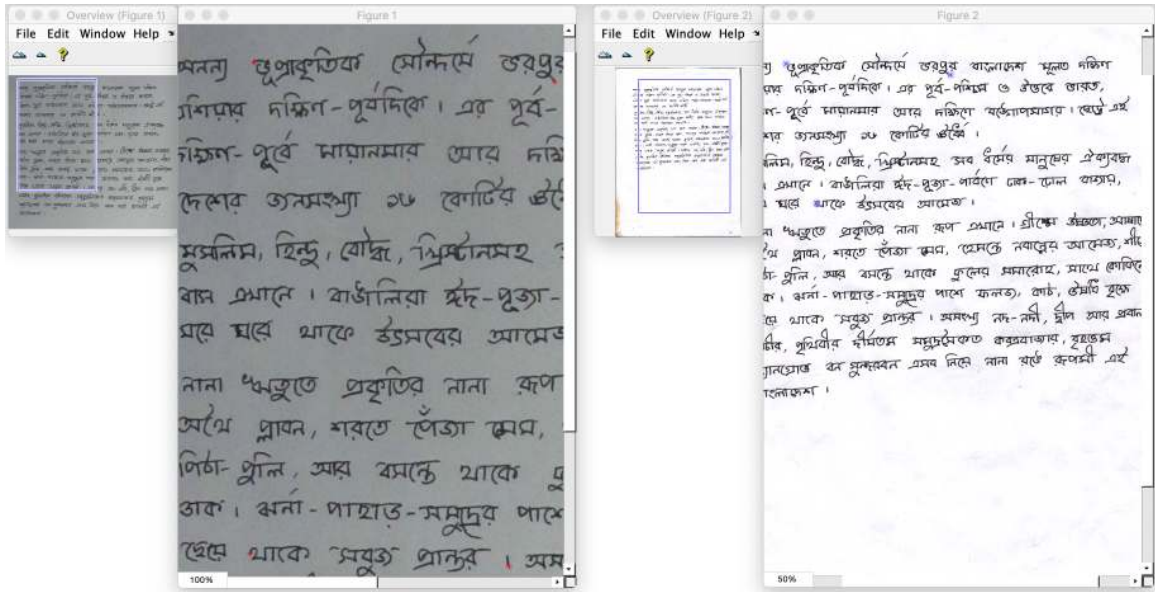 Overview (Figure 1)
File Edit Window Help
Figure 1
অনন্য ভূপ্রাকৃতিক সৌন্দর্যে ভরপুর
দক্ষিণ-পূর্বদিকে। এর পূর্ব-
দক্ষিণ-পূর্বে মায়ানমার আর
দেশের জনসংখ্যা ১৬ কোটির
মুসলিম, হিন্দু, বৌদ্ধ, খ্রিস্টানসহ
বাস এখানে। বাঙালিরা ঈদ-পূজা-
ঘরে ঘরে থাকে উৎসবের আমেজ
নানা ঋতুতে প্রকৃতির নানা রূপ
অথৈ প্লাবন, শরতে পেঁজা মেঘ,
পিঠা-পুলি, আর বসন্তে থাকে
ডাক। ঝর্না-পাহাড়-সমুদ্রের পাশে
ছেয়ে থাকে সবুজ প্রান্তর।
100%
Overview (Figure 2)
File Edit Window Help
Figure 2
ভূপ্রাকৃতিক সৌন্দর্যে ভরপুর বাংলাদেশ মূলত দক্ষিণ
দক্ষিণ-পূর্বদিকে। এর পূর্ব-পশ্চিম ও উত্তরে ভারত,
পূর্বে মায়ানমার আর দক্ষিণে বঙ্গোপসাগর। ছোট্ট এই
জনসংখ্যা ১৬ কোটির ঊর্ধ্বে।
হিন্দু, বৌদ্ধ, খ্রিস্টানসহ সব ধর্মের মানুষের ঐক্যবদ্ধ
এখানে। বাঙালিরা ঈদ-পূজা-পার্বণে ঢাক-ঢোল বাজায়,
ঘরে থাকে উৎসবের আমেজ।
ঋতুতে প্রকৃতির নানা রূপ এখানে। গ্রীষ্মে উষ্ণতা,
প্লাবন, শরতে পেঁজা মেঘ, হেমন্তে নবান্নের আমেজ,
পুলি, আর বসন্তে থাকে ফুলের সমারোহ, সাথে
ঝর্না-পাহাড়-সমুদ্রের পাশে ফলজ, কাঠ, ঔষধি বৃক্ষে
থাকে সবুজ প্রান্তর। অসংখ্য নদ-নদী, দ্বীপ আর প্রবাল
পৃথিবীর দীর্ঘতম সমুদ্রসৈকত কক্সবাজার, বৃহত্তম
বন সুন্দরবন এসব নিয়ে নানা রঙে রূপসী এই
50%